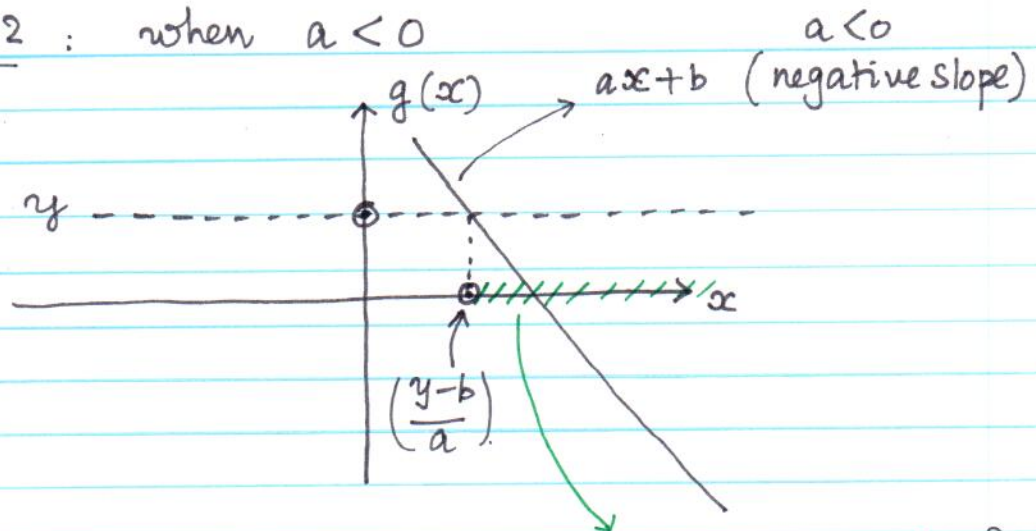 2 : when a < 0
a < 0
g(x) ax+b (negative slope)
y
x
(y-b/a)